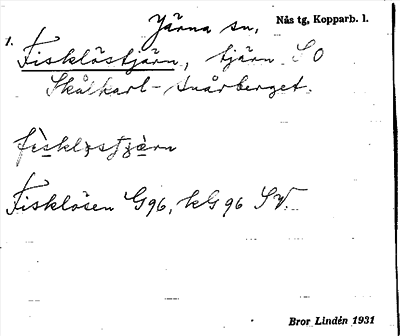 Järna sn, Nås tg, Kopparb. l.
1.
Fisklöstjärn, tjärn SO
Skålkarl-Snårberget.
Fisklösen G96, kG 96 SV.
Bror Lindén 1931